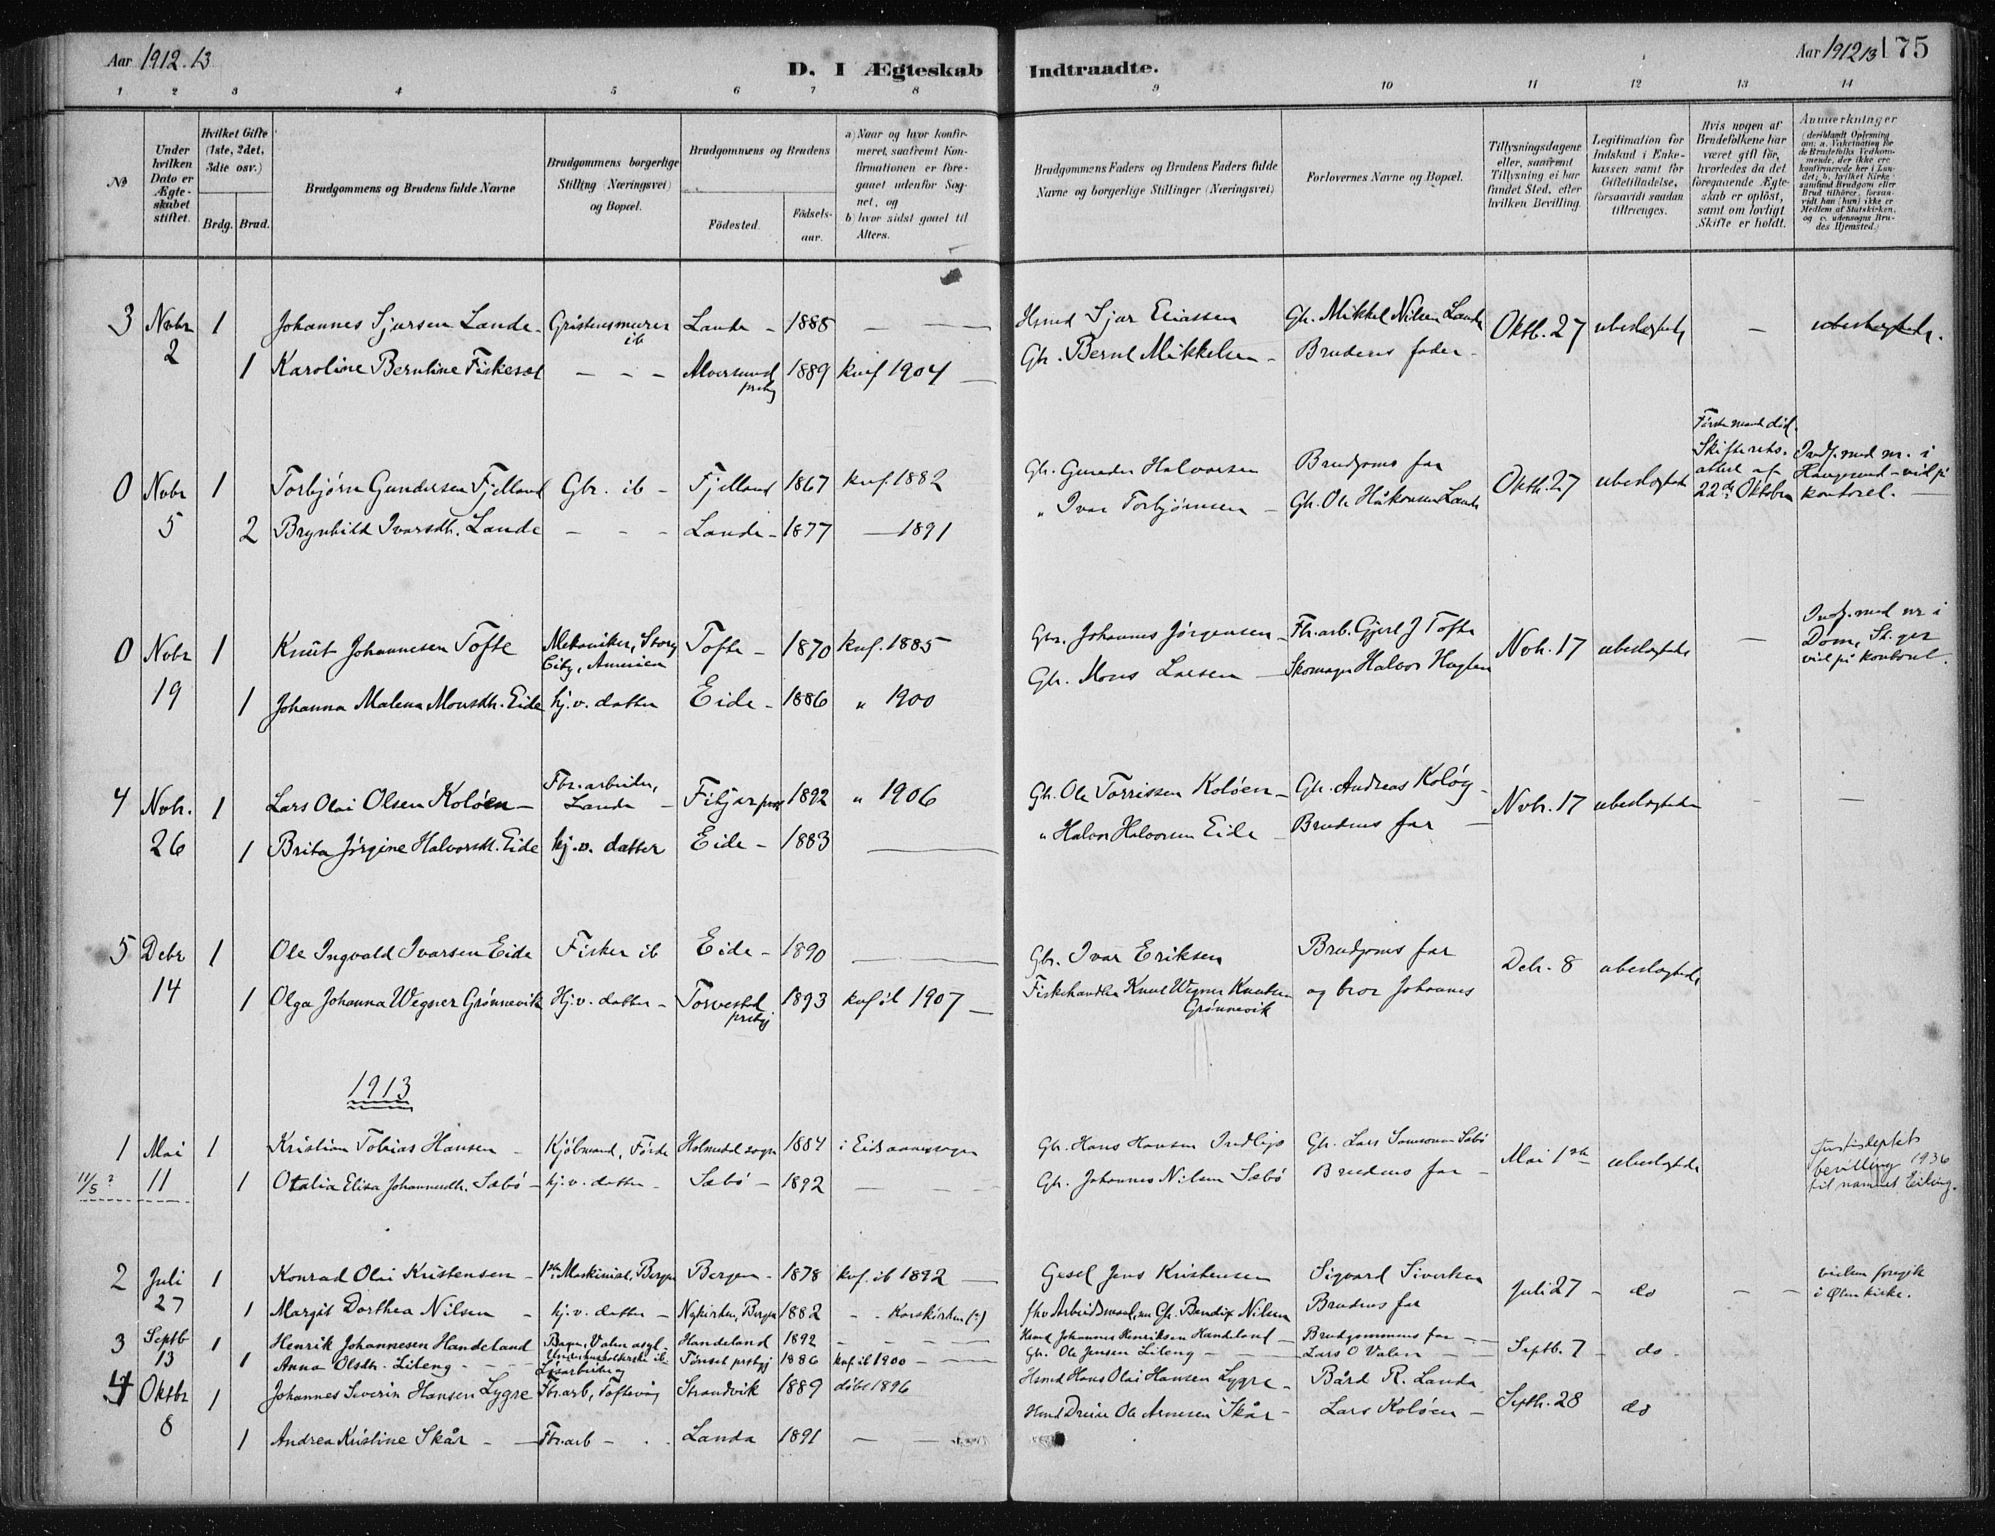 Aar 1912.13
D. I Ægteskab Indtraadte.
Aar 1912 13 175
1 2 3 4 5 6 7 8 9 10 11 12 13 14
№
Under hvilken Dato er Ægteskabet stiftet.
Hvilket Gifte (1ste, 2det, 3die osv.)
Brdg. Brud.
Brudgommens og Brudens fulde Navne
Brudgommens borgerlige Stilling (Næringsvei) og Bopæl.
Brudgommens og Brudens
Fødested. Fødselsaar.
a) Naar og hvor konfirmeret, saafremt Konfirmationen er foregaaet udenfor Sognet, og
b) hvor sidst gaaet til Alters.
Brudgommens Faders og Brudens Faders fulde Navne og borgerlige Stillinger (Næringsvei)
Forlovernes Navne og Bopæl.
Tillysningsdagene eller, saafremt Tillysning ei har fundet Sted, efter hvilken Bevilling.
Legitimation for Indskud i Enkekassen samt for Giftetilladelse, forsaavidt saadan tiltrænges.
Hvis nogen af Brudefolkene har været gift før, hvorledes da det foregaaende Ægteskab er opløst, samt om lovligt Skifte er holdt.
Anmærkninger
3 Novbr 2 1 Johannes Sjursen Lande Gråstensmurer ib Lande 1888 — Hsmd Sjur Eliassen Gbr. Mikkel Nilsen Lande Oktb. 27 ubeslægtede — ubeslægtede.
1 Karoline Berntine Fiskeset - - - Alversund prstgj 1889 knf 1904 Gbr. Bernt Mikkelsen Brudens fader
0 Novbr 5 1 Torbjørn Gundersen Fjelland Gbr. ib Fjelland 1867 knf. 1882 Gbr. Gunder Halvorsen Brudgoms far Oktb. 27 ubeslægtede Første mand død. Skifterets. attest af 22de Oktober Indf. med nr. i Haugesund - vid på kontoret.
2 Brynhild Ivarsdtr. Lande - - - Lande 1877 — 1891 " Ivar Torbjørnsen Gbr. Ole Håkonsen Lande
0 Novbr 19 1 Knut Johannesen Tofte Mekaniker, Story City, Amerika Tofte 1870 knf. 1885 Gbr. Johannes Jørgensen Fbr.arb. Gjert J Tofte Nvb. 17 ubeslægtede — Indf. med nr i Dom, St. ger vid på kontoret.
1 Johanna Malena Monsdtr. Eide hj.v. datter Eide 1886 " 1900 Gbr. Mons Larsen Skomager Halvor Hagland
4 Novbr. 26 1 Lars Olai Olsen Koløen Fbr.arbeider, Landa Fitjar prst 1892 " 1906 Gbr. Ole Torrissen Koløen Gbr. Andreas Koløy Nvb. 17 ubeslægtede — —
1 Brita Jørgine Halvorsdtr. Eide hj.v. datter Eide 1883 — " Halvor Halvorsen Eide Brudens far
5 Debr 14 1 Ole Ingvald Ivarsen Eide Fisker ib Eide 1890 — Gbr. Ivar Eriksen Brudgoms far Debr. 8 ubeslægtede
1 Olga Johanna Wegner Grønnevik Hj.v. datter Torvestad prstgj 1893 knf ib 1907 Fiskehandler Knut Wegner Knutsen Grønnevik og bror Johannes
1913
1 Mai 11 1 Kristian Tobias Hansen Kjøbmand, Førde Holmedal sogn 1884 i Eid annexsogn Gbr. Hans Hansen Gbr. Lars Samsonsen Sæbø Mai 1ste ubeslægtede Justisdeptets bevilling 1936 til namnet Eiling.
11/5 ? 1 Otalia Elisa Johannesdtr. Sæbø hj.v. datter Sæbø 1892 - - - Gbr. Johannes Nilsen Sæbø Brudens far
2 Juli 27 1 Konrad Olai Kristensen 1ste Maskinist, Bergen Bergen 1878 knf. ib 1892 Gesel Jens Kristensen Sigvard Sivertsen Juli 27 do — vielsen foregik i Ølen kirke.
1 Margit Dorthea Nilsen hj.v. datter Nykirken, Bergen 1882 - Korskirken (?) fhv Arbeidsmand, nu Gbr. Bendix Nilsen Brudens far
3 Septb 13 1 Henrik Johannesen Handeland Bager, Valen asyl Handeland 1892 - - - Hsmd Johannes Henriksen Handeland Brudgommens far Septb. 7 do
1 Anna Olsdtr. Lileng Underholderske ib Tönset prstgj 1886 knf ib 1900 Gbr. Ole Jensen Lileng Lars O Valen
4 Oktbr 8 1 Johannes Severin Hansen Lygre Fbr.arb, Toftevåg Strandvik 1889 døbt 1896 Hsmd Hans Olai Hansen Lygre Bård R. Landa Septb. 28 do
1 Andrea Kristine Skår Fbr.arb Landa 1891 — Hsmd Dreier Ole Arnesen Skår Lars Koløen